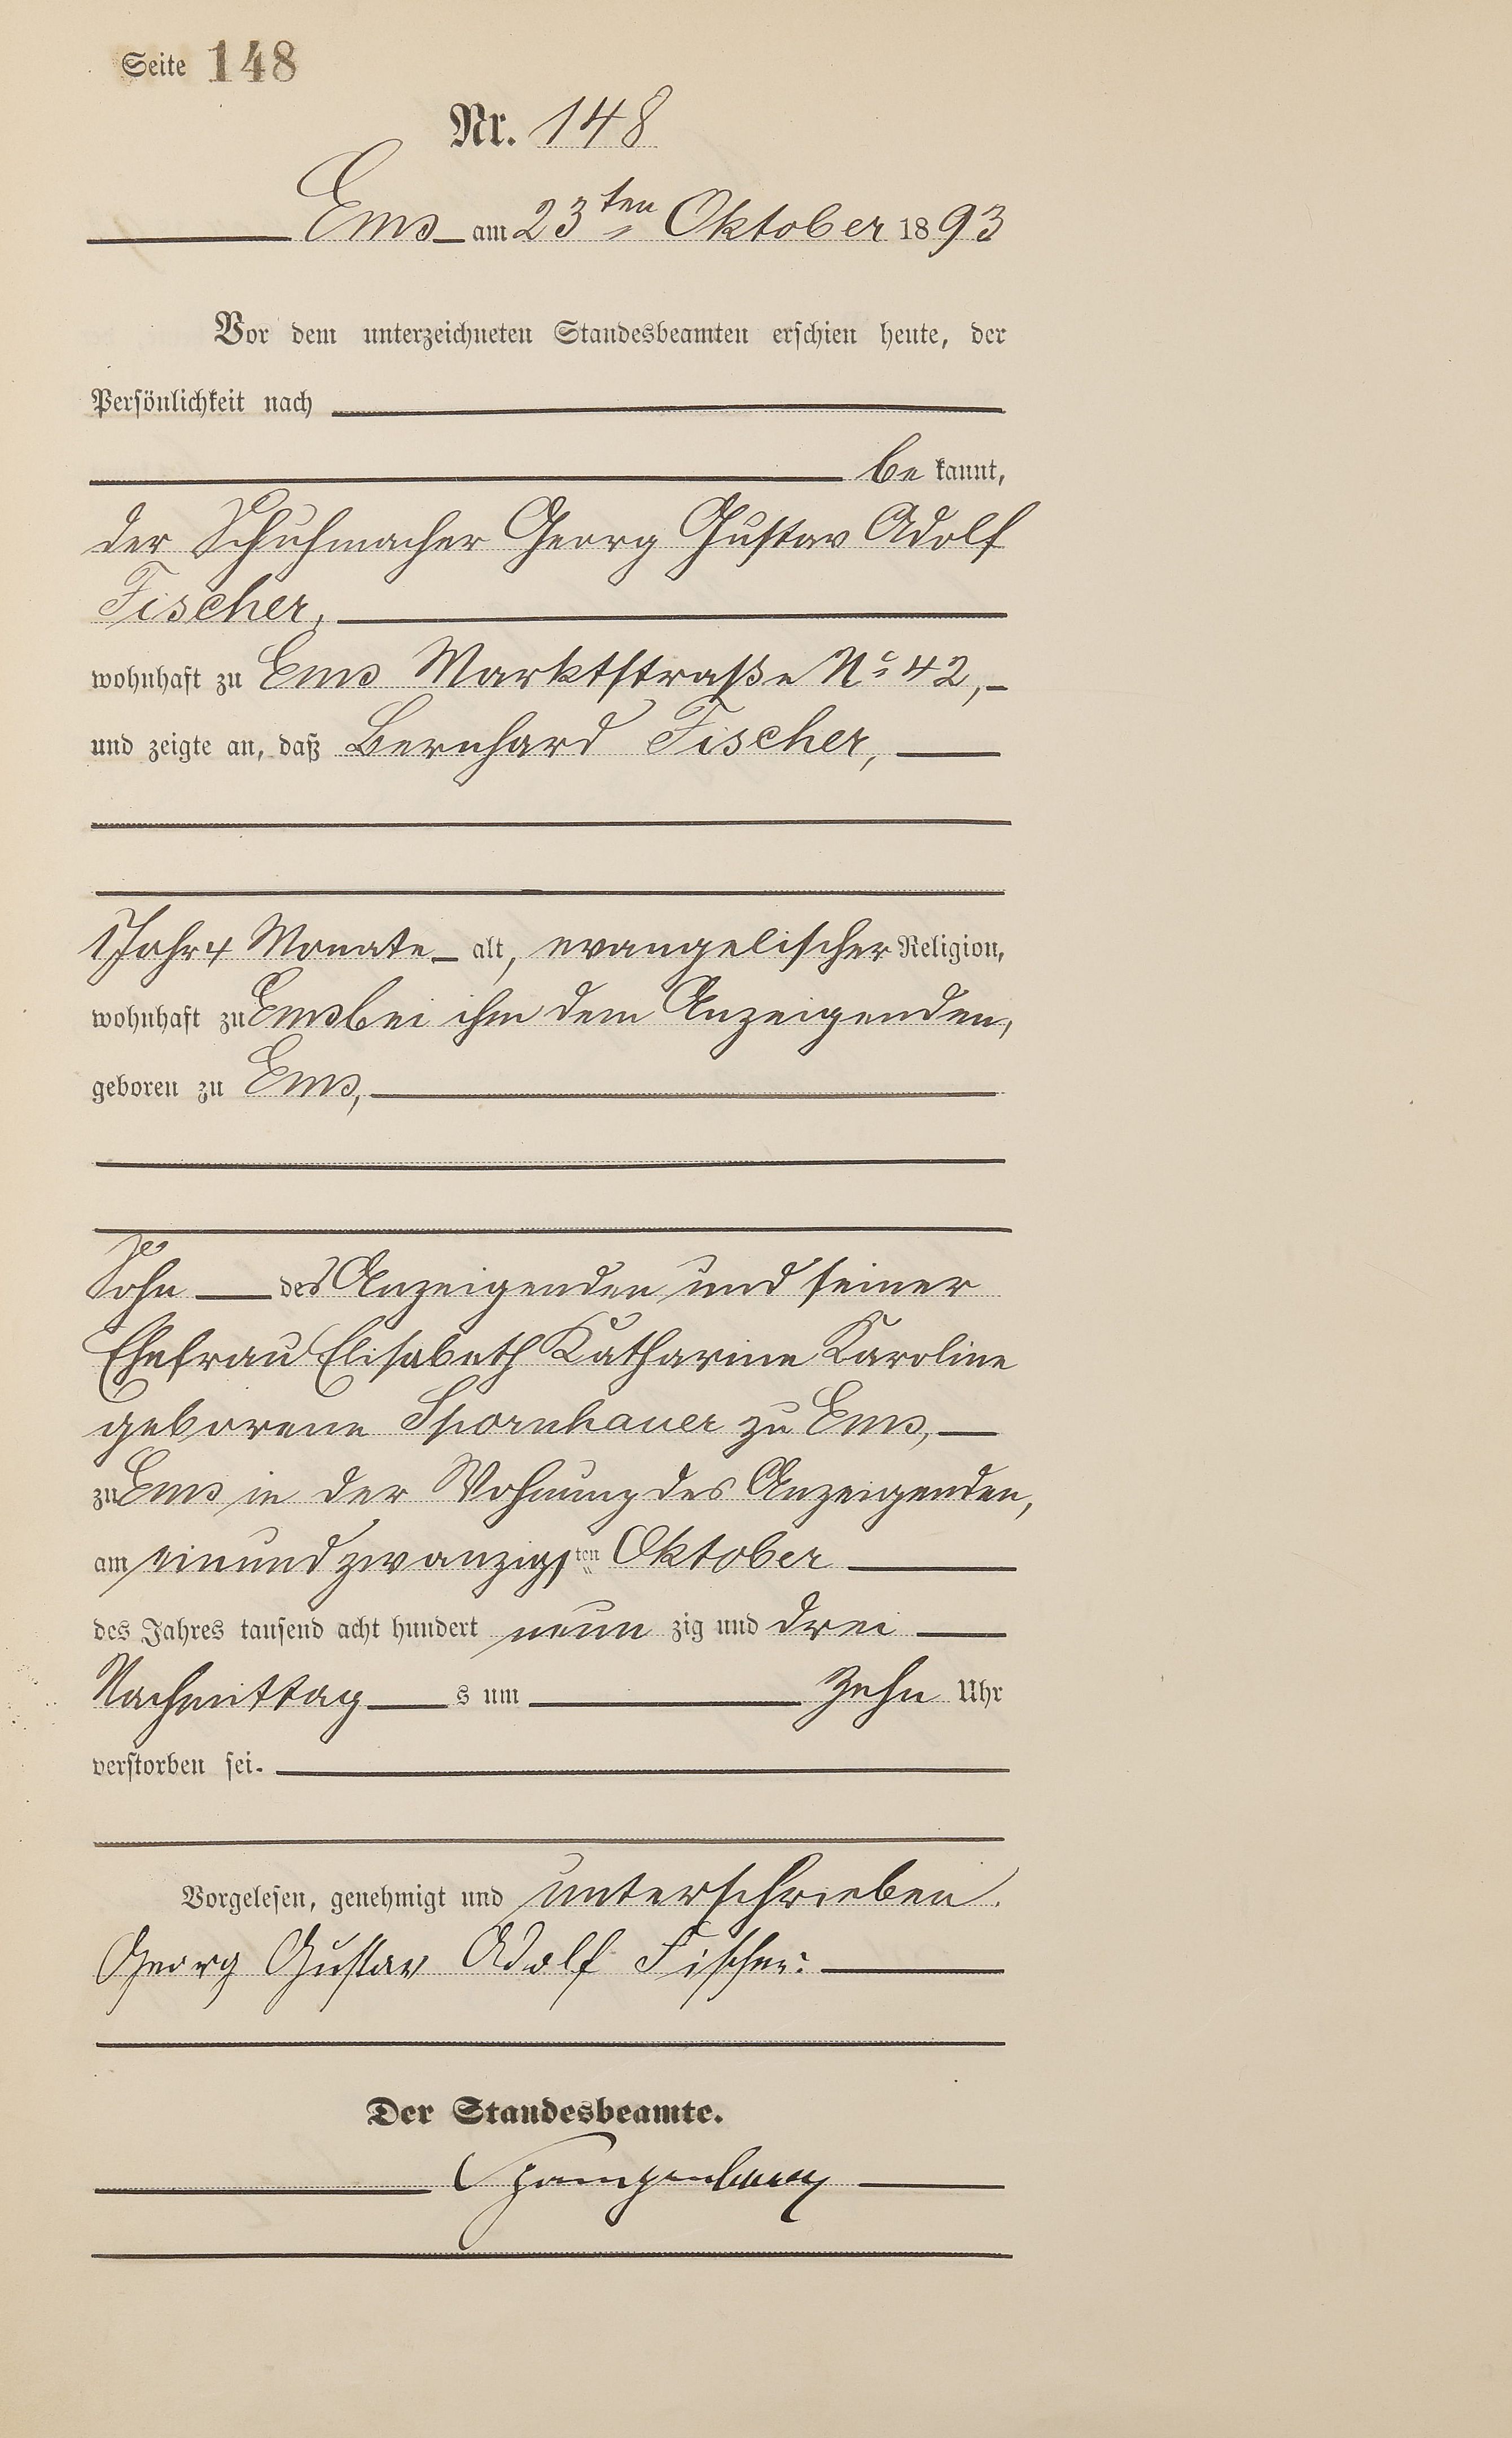 Seite 148
Nr. 148
Ems am 23ten Oktober 1893
Vor dem unterzeichneten Standesbeamten erschien heute, der
Persönlichkeit nach
be kannt,
der Schuhmacher Georg Gustav Adolf
Fischer,
wohnhaft zu Ems Marktstraße No 42,
und zeigte an, daß Bernhard Fischer,
1 Jahr 4 Monate alt, evangelischer Religion,
wohnhaft zu Ems bei ihm dem Anzeigenden,
geboren zu Ems,
Sohn des Anzeigenden und seiner
Ehefrau Elisabeth Katharine Karoline
geborene Spornhauer zu Ems,
zu Ems in der Wohnung des Anzeigenden,
am einundzwanzigsten Oktober
des Jahres tausend acht hundert neun zig und drei
Nachmittag s um zehn Uhr
verstorben sei.
Vorgelesen, genehmigt und unterschrieben.
Georg Gustav Adolf Fischer.
Der Standesbeamte.
Spangenberg